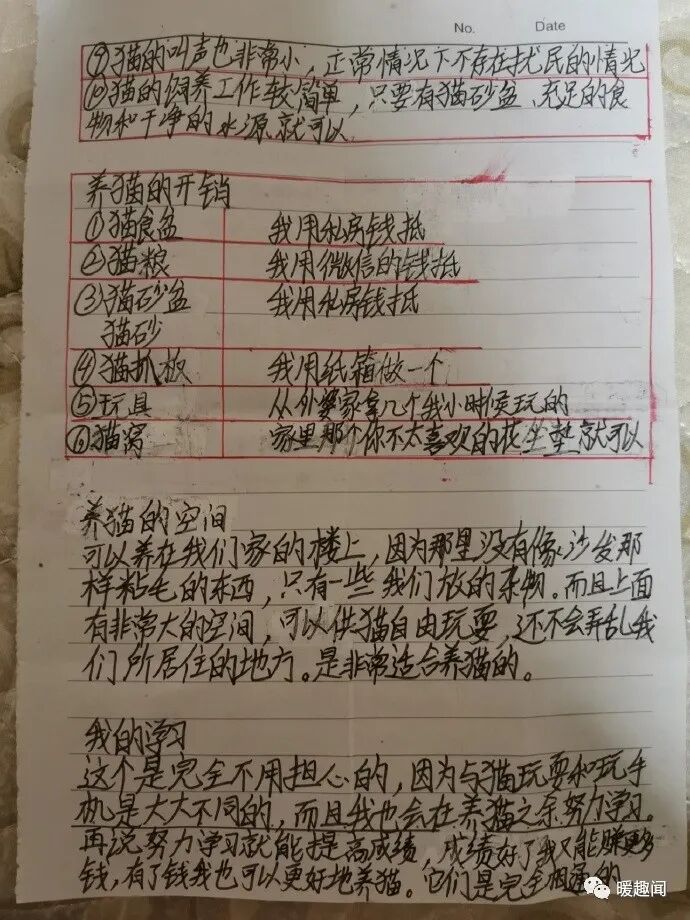 No. Date
⑨猫的叫声也非常小，正常情况下不存在扰民的情况
⑩猫的饲养工作较简单，只要有猫砂盆、充足的食
物和干净的水源就可以
养猫的开销
①猫食盆 我用私房钱抵
②猫粮 我用微信的钱抵
③猫砂盆 我用私房钱抵
猫砂
④猫抓板 我用纸箱做一个
⑤玩具 从外婆家拿几个我小时候玩的
⑥猫窝 家里那个你不太喜欢的花坐垫就可以
养猫的空间
可以养在我们家的楼上，因为那里没有像沙发那
样粘毛的东西，只有一些我们放的杂物。而且上面
有非常大的空间，可以供猫自由玩耍，还不会弄乱我
们所居住的地方。是非常适合养猫的。
我的学习
这个是完全不用担心的，因为与猫玩耍和玩手
机是大大不同的，而且我也会在养猫之余努力学习。
再说努力学习就能提高成绩，成绩好了我又能赚更多
钱，有了钱我也可以更好地养猫。它们是完全相 的
暖趣闻